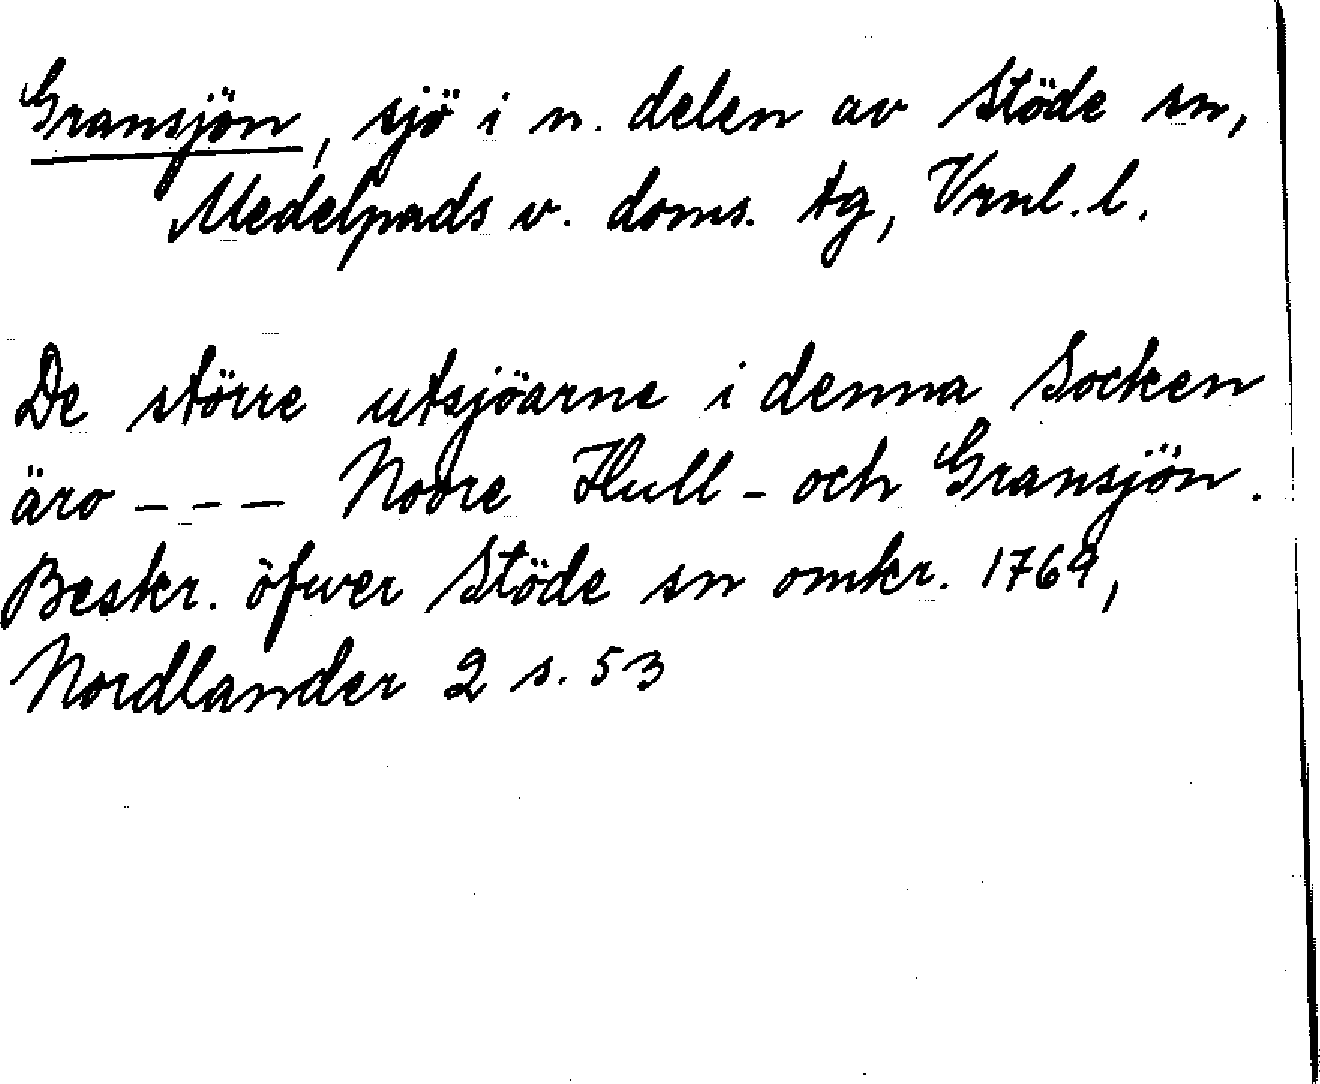 Gransjön, sjö i n. delen av Stöde sn,
Medelpads v. doms. tg, Vrnl. l.
De större utsjöarne i denna Socken
äro - - - Nodre Hull- och Gransjön.
Beskr. öfwer Stöde sn omkr. 1769,
Nordlander 2 s. 53